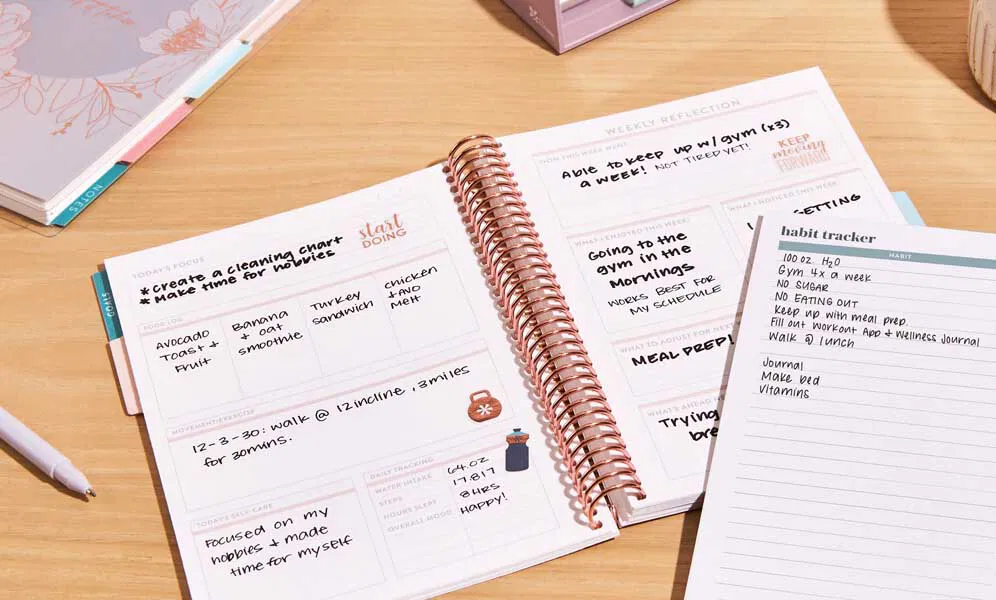 NOTES
TODAY'S FOCUS
start
DOING
*Create a cleaning chart
*Make time for hobbies
FOOD LOG
Avocado
Toast +
Fruit
Banana
+ oat
smoothie
Turkey
sandwich
chicken
+ avo
melt
MOVEMENT/EXERCISE
12-3-30: walk @ 12 incline, 3 miles
for 30mins.
TODAY'S SELF-CARE
Focused on my
hobbies + made
time for myself
DAILY TRACKING
WATER INTAKE 64.oz
STEPS 17,817
HOURS SLEPT 8 HRS
OVERALL MOOD Happy!
WEEKLY REFLECTION
HOW THIS WEEK WENT
Able to keep up w/ gym (x3)
a week! NOT TIRED YET!
KEEP
moving
FORWARD
WHAT I ENJOYED THIS WEEK
Going to the
gym in the
Mornings
WORKS BEST FOR
MY SCHEDULE
WHAT I NOTICED THIS WEEK
GETTING
WHAT TO ADJUST FOR NEXT
MEAL PREP!
WHAT'S AHEAD
Trying
habit tracker
HABIT
100 oz. H2O
Gym 4x a week
NO SUGAR
NO EATING OUT
Keep up with meal prep.
Fill out Workout App + Wellness Journal
Walk @ lunch
Journal
Make bed
Vitamins